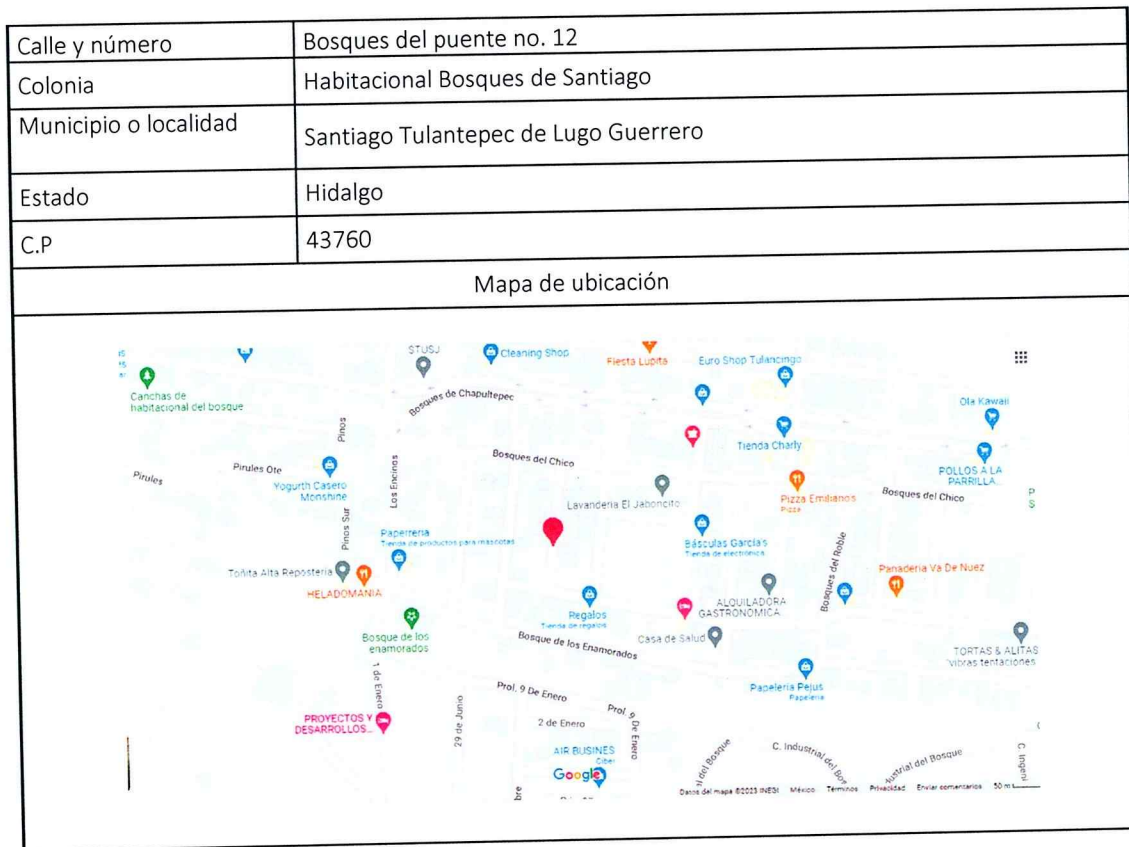 Calle y número Bosques del puente no. 12
Colonia Habitacional Bosques de Santiago
Municipio o localidad Santiago Tulantepec de Lugo Guerrero
Estado Hidalgo
C.P 43760
Mapa de ubicación
STUSJ
Cleaning Shop
Fiesta Lupita
Euro Shop Tulancingo
Canchas de
habitacional del bosque
Bosques de Chapultepec
Ola Kawaii
Pinos
Tienda Charly
Pirules
Pirules Ote
Yogurth Casero
Monshine
Los Encinos
Bosques del Chico
POLLOS A LA
PARRILLA...
Lavanderia El Jaboncito
Pizza Emiliano's
Pizza
Bosques del Chico
Pinos Sur
Paperreria
Tienda de productos para mascotas
Básculas García's
Tienda de electrónica
Bosques del Roble
Toñita Alta Reposteria
HELADOMANIA
Panaderia Va De Nuez
Regalos
Tienda de regalos
ALQUILADORA
GASTRONOMICA
Bosque de los
enamorados
Bosque de los Enamorados
Casa de Salud
TORTAS & ALITAS
"vibras tentaciones
1 de Enero
Papeleria Pejus
Papelería
Prol. 9 De Enero
PROYECTOS Y
DESARROLLOS...
29 de Junio
2 de Enero
Prol. 9 De Enero
AIR BUSINES
Ciber
Google
del Bosque
C. Industrial del Bos
ustrial del Bosque
C. Ingeni
bre
Datos del mapa ©2023 INEGI México Términos Privacidad Enviar comentarios 50 m